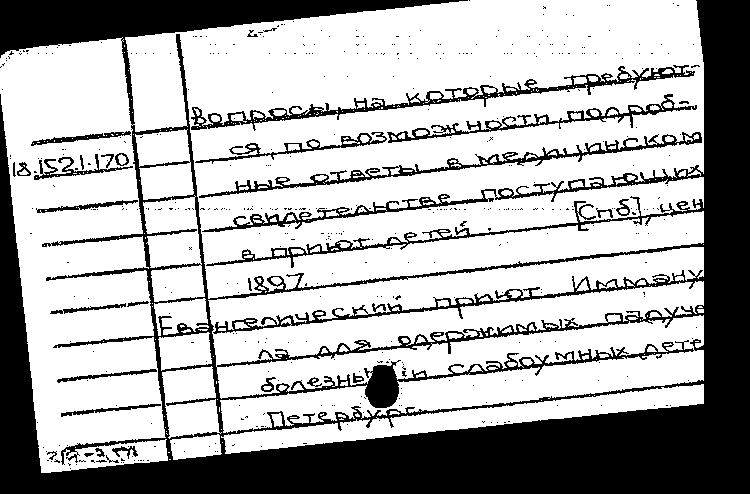 Вопросы, на которые требуют-
18.152.1.170
ся, по возможности, подроб-
ные ответы в медицинском
свидетельстве поступающих
в приют детей. [Спб.], цен
1897.
Евангелический приют Иммануи
ла для одержимых падуче
болезнью и слабоумных дете
Петербург.